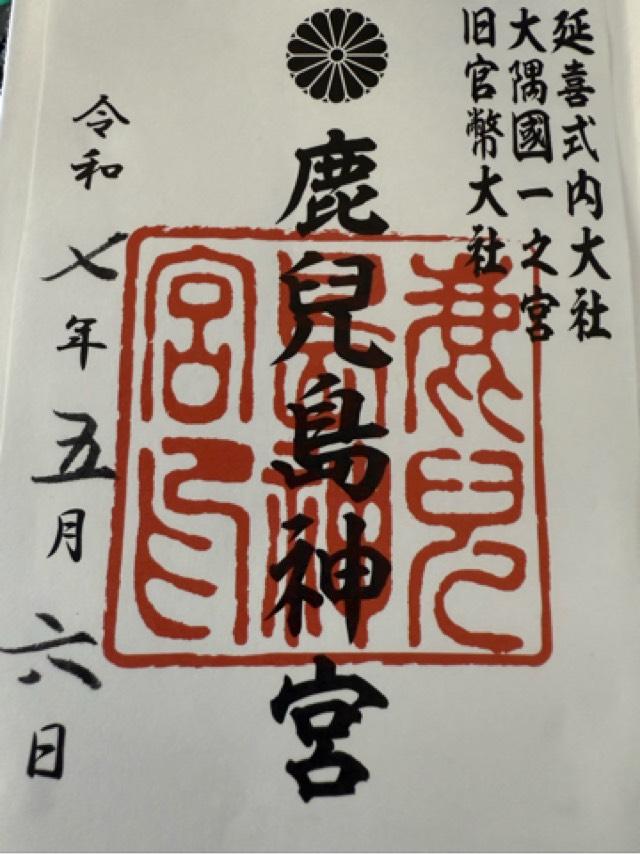 延喜式内大社
大隅國一之宮
旧官幣大社
鹿兒島神宮
鹿兒島神宮印
令和七年五月六日